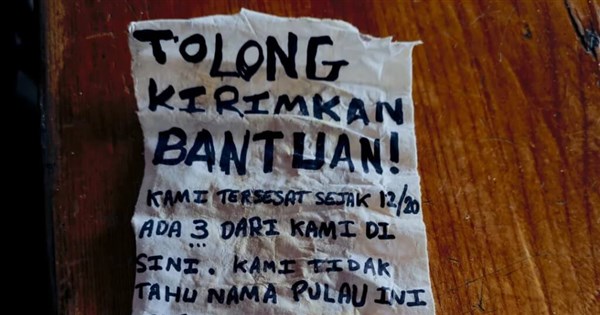 TOLONG
KIRIMKAN
BANTUAN!
KAMI TERSESAT SEJAK 12/20
ADA 3 DARI KAMI DI
SINI. KAMI TIDAK
TAHU NAMA PULAU INI